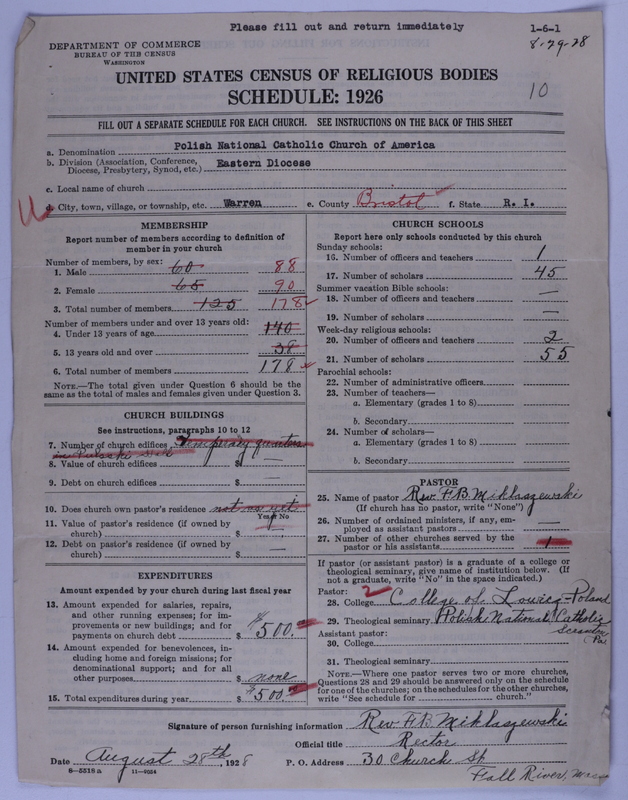 Please fill out and return immediately
1-6-1
8-29-28
DEPARTMENT OF COMMERCE
BUREAU OF THE CENSUS
WASHINGTON
UNITED STATES CENSUS OF RELIGIOUS BODIES
SCHEDULE: 1926
10
FILL OUT A SEPARATE SCHEDULE FOR EACH CHURCH. SEE INSTRUCTIONS ON THE BACK OF THIS SHEET
a. Denomination Polish National Catholic Church of America
b. Division (Association, Conference, Diocese, Presbytery, Synod, etc.) Eastern Diocese
c. Local name of church
d. City, town, village, or township, etc. Warren e. County Bristol f. State R. I.
MEMBERSHIP
Report number of members according to definition of
member in your church
Number of members, by sex:
1. Male 60 88
2. Female 65 90
3. Total number of members 125 178
Number of members under and over 13 years old:
4. Under 13 years of age 140
5. 13 years old and over 38
6. Total number of members 178
NOTE.—The total given under Question 6 should be the
same as the total of males and females given under Question 3.
CHURCH BUILDINGS
See instructions, paragraphs 10 to 12
7. Number of church edifices Temporary quarters
in Pulaski
8. Value of church edifices $ —
9. Debt on church edifices $ —
10. Does church own pastor's residence not as yet
Yes or No
11. Value of pastor's residence (if owned by
church) $ —
12. Debt on pastor's residence (if owned by
church) $ —
EXPENDITURES
Amount expended by your church during last fiscal year
13. Amount expended for salaries, repairs,
and other running expenses; for im-
provements or new buildings; and for
payments on church debt $ 500.
14. Amount expended for benevolences, in-
cluding home and foreign missions; for
denominational support; and for all
other purposes $ none
15. Total expenditures during year $ 500.
CHURCH SCHOOLS
Report here only schools conducted by this church
Sunday schools:
16. Number of officers and teachers 1
17. Number of scholars 45
Summer vacation Bible schools:
18. Number of officers and teachers —
19. Number of scholars —
Week-day religious schools:
20. Number of officers and teachers 2
21. Number of scholars 55
Parochial schools:
22. Number of administrative officers
23. Number of teachers—
a. Elementary (grades 1 to 8)
b. Secondary
24. Number of scholars—
a. Elementary (grades 1 to 8)
b. Secondary
PASTOR
25. Name of pastor Rev. F.B. Miklaszewski
(If church has no pastor, write "None")
26. Number of ordained ministers, if any, em-
ployed as assistant pastors —
27. Number of other churches served by the
pastor or his assistants 1
If pastor (or assistant pastor) is a graduate of a college or
theological seminary, give name of institution below. (If
not a graduate, write "No" in the space indicated.)
Pastor: 2
28. College College of Lowicz-Poland
29. Theological seminary Polish National Catholic
Scranton
Pa.
Assistant pastor:
30. College
31. Theological seminary
NOTE.—Where one pastor serves two or more churches,
Questions 28 and 29 should be answered only on the schedule
for one of the churches; on the schedules for the other churches,
write "See schedule for church."
Signature of person furnishing information Rev. F.B. Miklaszewski
Official title Rector
Date August 28th, 1928 P. O. Address 30 Church St
Fall River, Mass
8—5518a 11—9054